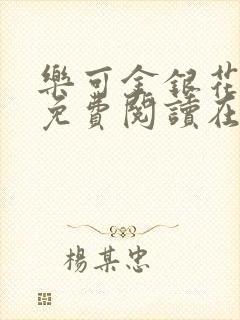 樂可金銀花
免費閱讀在
楊某忠